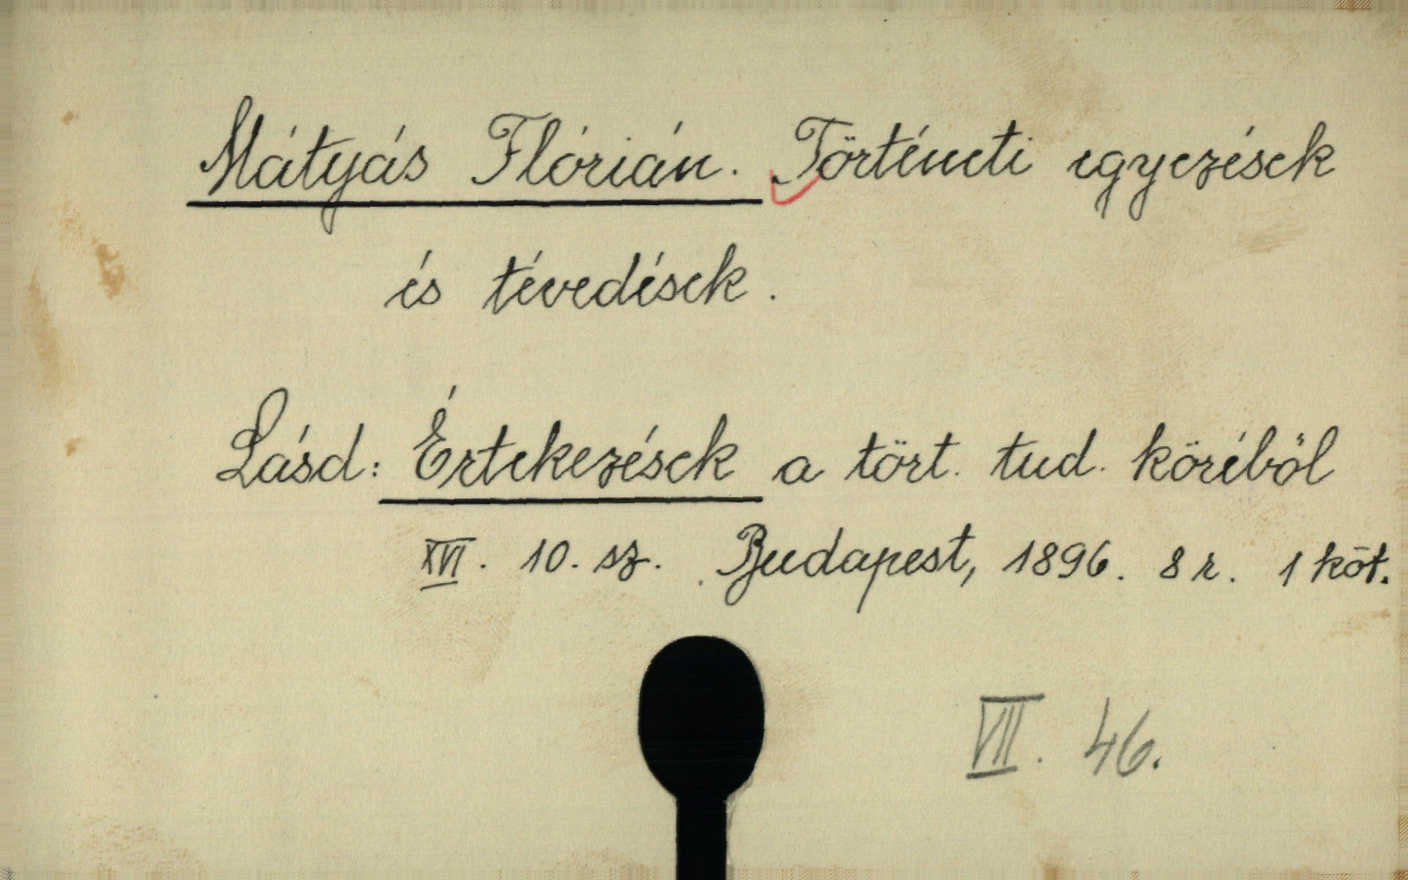 Mátyás Flórián. Történeti egyezések
és tévedések.
Lásd: Értekezések a tört. tud. köréből
XVI. 10. sz. Budapest, 1896. 8 r. 1 köt.
VII. 46.